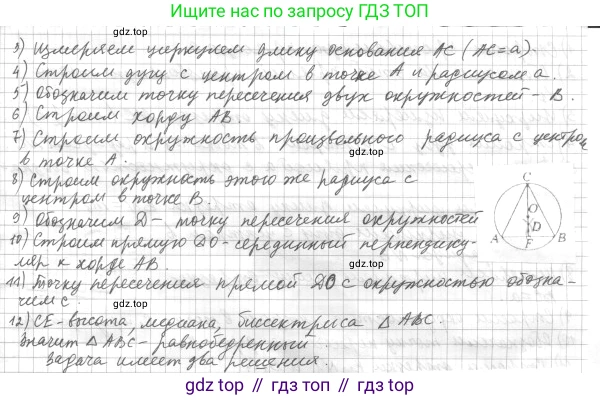 Ищите нас по запросу ГДЗ ТОП
3) Измеряем циркулем длину основания AC (AC=a).
4) Строим дугу с центром в точке A и радиусом a.
5) Обозначим точку пересечения двух окружностей - B.
6) Строим хорду AB.
7) Строим окружность произвольного радиуса с центром
в точке A.
8) Строим окружность этого же радиуса с
центром в точке B.
9) Обозначим D - точку пересечения окружностей
10) Строим прямую DO - серединный перпендику-
ляр к хорде AB.
11) Точку пересечения прямой DO с окружностью обозна-
чим C.
12) CE - высота, медиана, биссектриса △ ABC.
Значит △ ABC - равнобедренный.
Задача имеет два решения.
C
O
D
A
F
B
gdz top
gdz top
gdz top
gdz top
gdz top
gdz top // гдз топ // gdz top